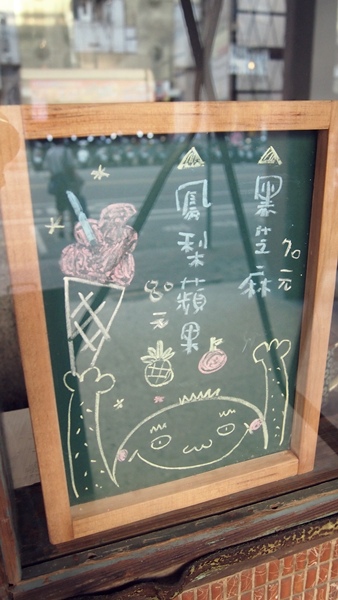 黑芝麻
70元
鳳梨蘋果
80元